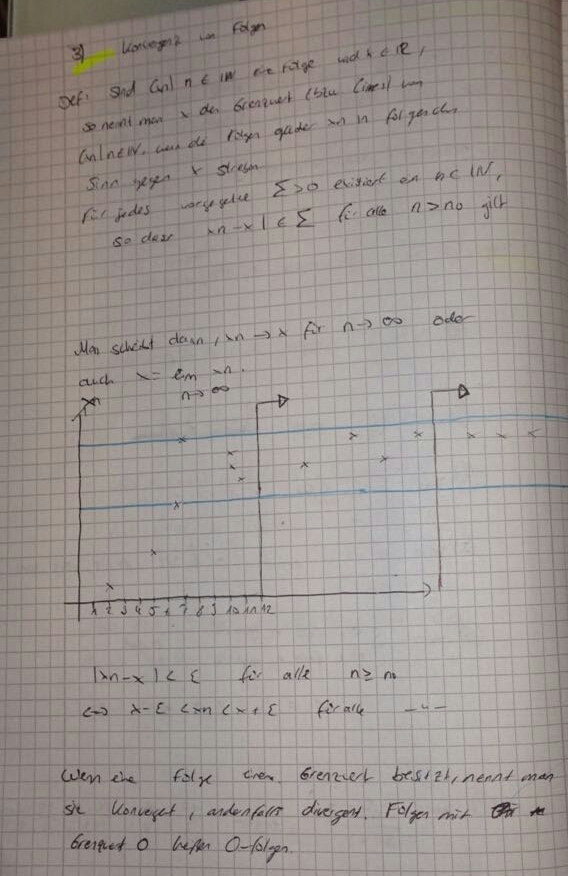 3) Konvergenz von Folgen
Def: Sind (xn) n ∈ IN eine Folge und x ∈ IR,
so nennt man x den Grenzwert (bzw Limes) von
(xn) n∈IN, wenn die Folgen glieder xn in folgenden
Sinn gegen x streben
Für jedes vorgegebene Σ>0 existiert ein n ∈ IN,
so dass xn - x | < Σ für alle n > n0 gilt
Man schreibt dann, xn → x für n → ∞ oder
auch x = lim xn.
n → ∞
xn
1 2 3 4 5 6 7 8 9 10 11 12
|xn - x| < Σ für alle n ≥ n0
⇔ x-Σ < xn < x+Σ für alle -"-
Wenn eine Folge einen Grenzwert besitzt, nennt man
sie konverget, andenfalls divergent. Folgen mit
Grenzwert 0 heißen 0-folgen.